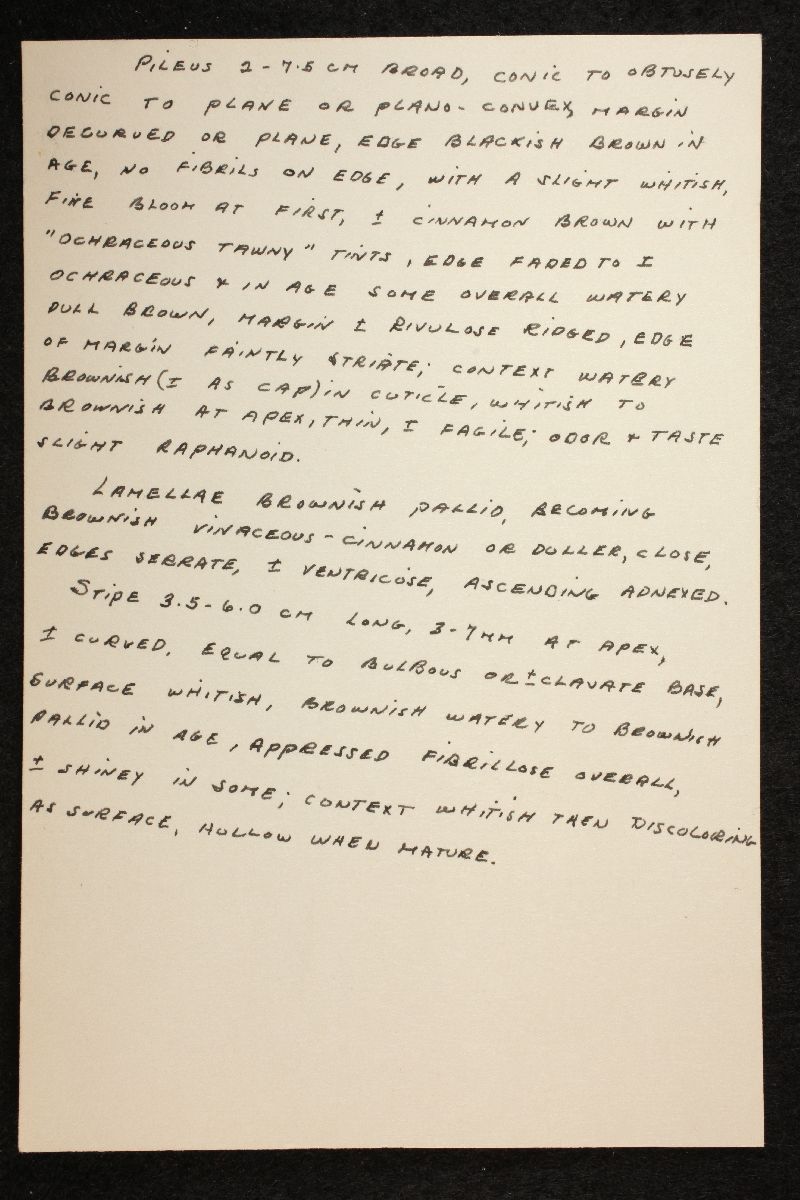 PILEUS 2-7.5 CM BROAD, CONIC TO OBTUSELY
CONIC TO PLANE OR PLANO-CONVEX, MARGIN
DECURVED OR PLANE, EDGE BLACKISH BROWN IN
AGE, NO FIBRILS ON EDGE, WITH A SLIGHT WHITISH,
FINE BLOOM AT FIRST, ± CINNAMON BROWN WITH
"OCHRACEOUS TAWNY" TINTS, EDGE FADED TO ±
OCHRACEOUS & IN AGE SOME OVERALL WATERY
DULL BROWN, MARGIN ± RIVULOSE RIDGED, EDGE
OF MARGIN FAINTLY STRIATE; CONTEXT WATERY
BROWNISH (± AS CAP) IN CUTICLE, WHITISH TO
BROWNISH AT APEX, THIN, ± FAGILE; ODOR & TASTE
SLIGHT RAPHANOID.
LAMELLAE BROWNISH PALLID, BECOMING
BROWNISH VINACEOUS-CINNAMON OR DULLER, CLOSE,
EDGES SERRATE, ± VENTRICOSE, ASCENDING ADNEXED.
STIPE 3.5-6.0 CM LONG, 3-7MM AT APEX,
± CURVED, EQUAL TO BULBOUS OR ± CLAVATE BASE,
SURFACE WHITISH, BROWNISH WATERY TO BROWNISH
PALLID IN AGE, APPRESSED FIBRILLOSE OVERALL,
± SHINEY IN SOME; CONTEXT WHITISH THEN DISCOLORING
AS SURFACE, HOLLOW WHEN MATURE.